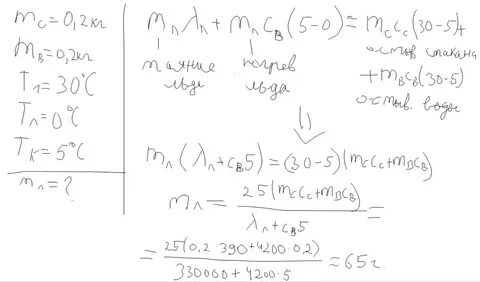 mc = 0,2кг
mв = 0,2кг
T1 = 30°C
Tл = 0°C
Tк = 5°C
mл = ?
mл λл + mл cв (5-0) = mc cc (30-5) +
таяние льда
погрев льда
остыв стакана
+ mв cв (30-5)
остыв. воды
⇓
mл (λл + cв 5) = (30-5) (mc cc + mв cв)
mл = 25 (mc cc + mв cв) / λл + cв 5 =
= 25 (0,2 390 + 4200 · 0,2) / 330000 + 4200 · 5 = 65г.